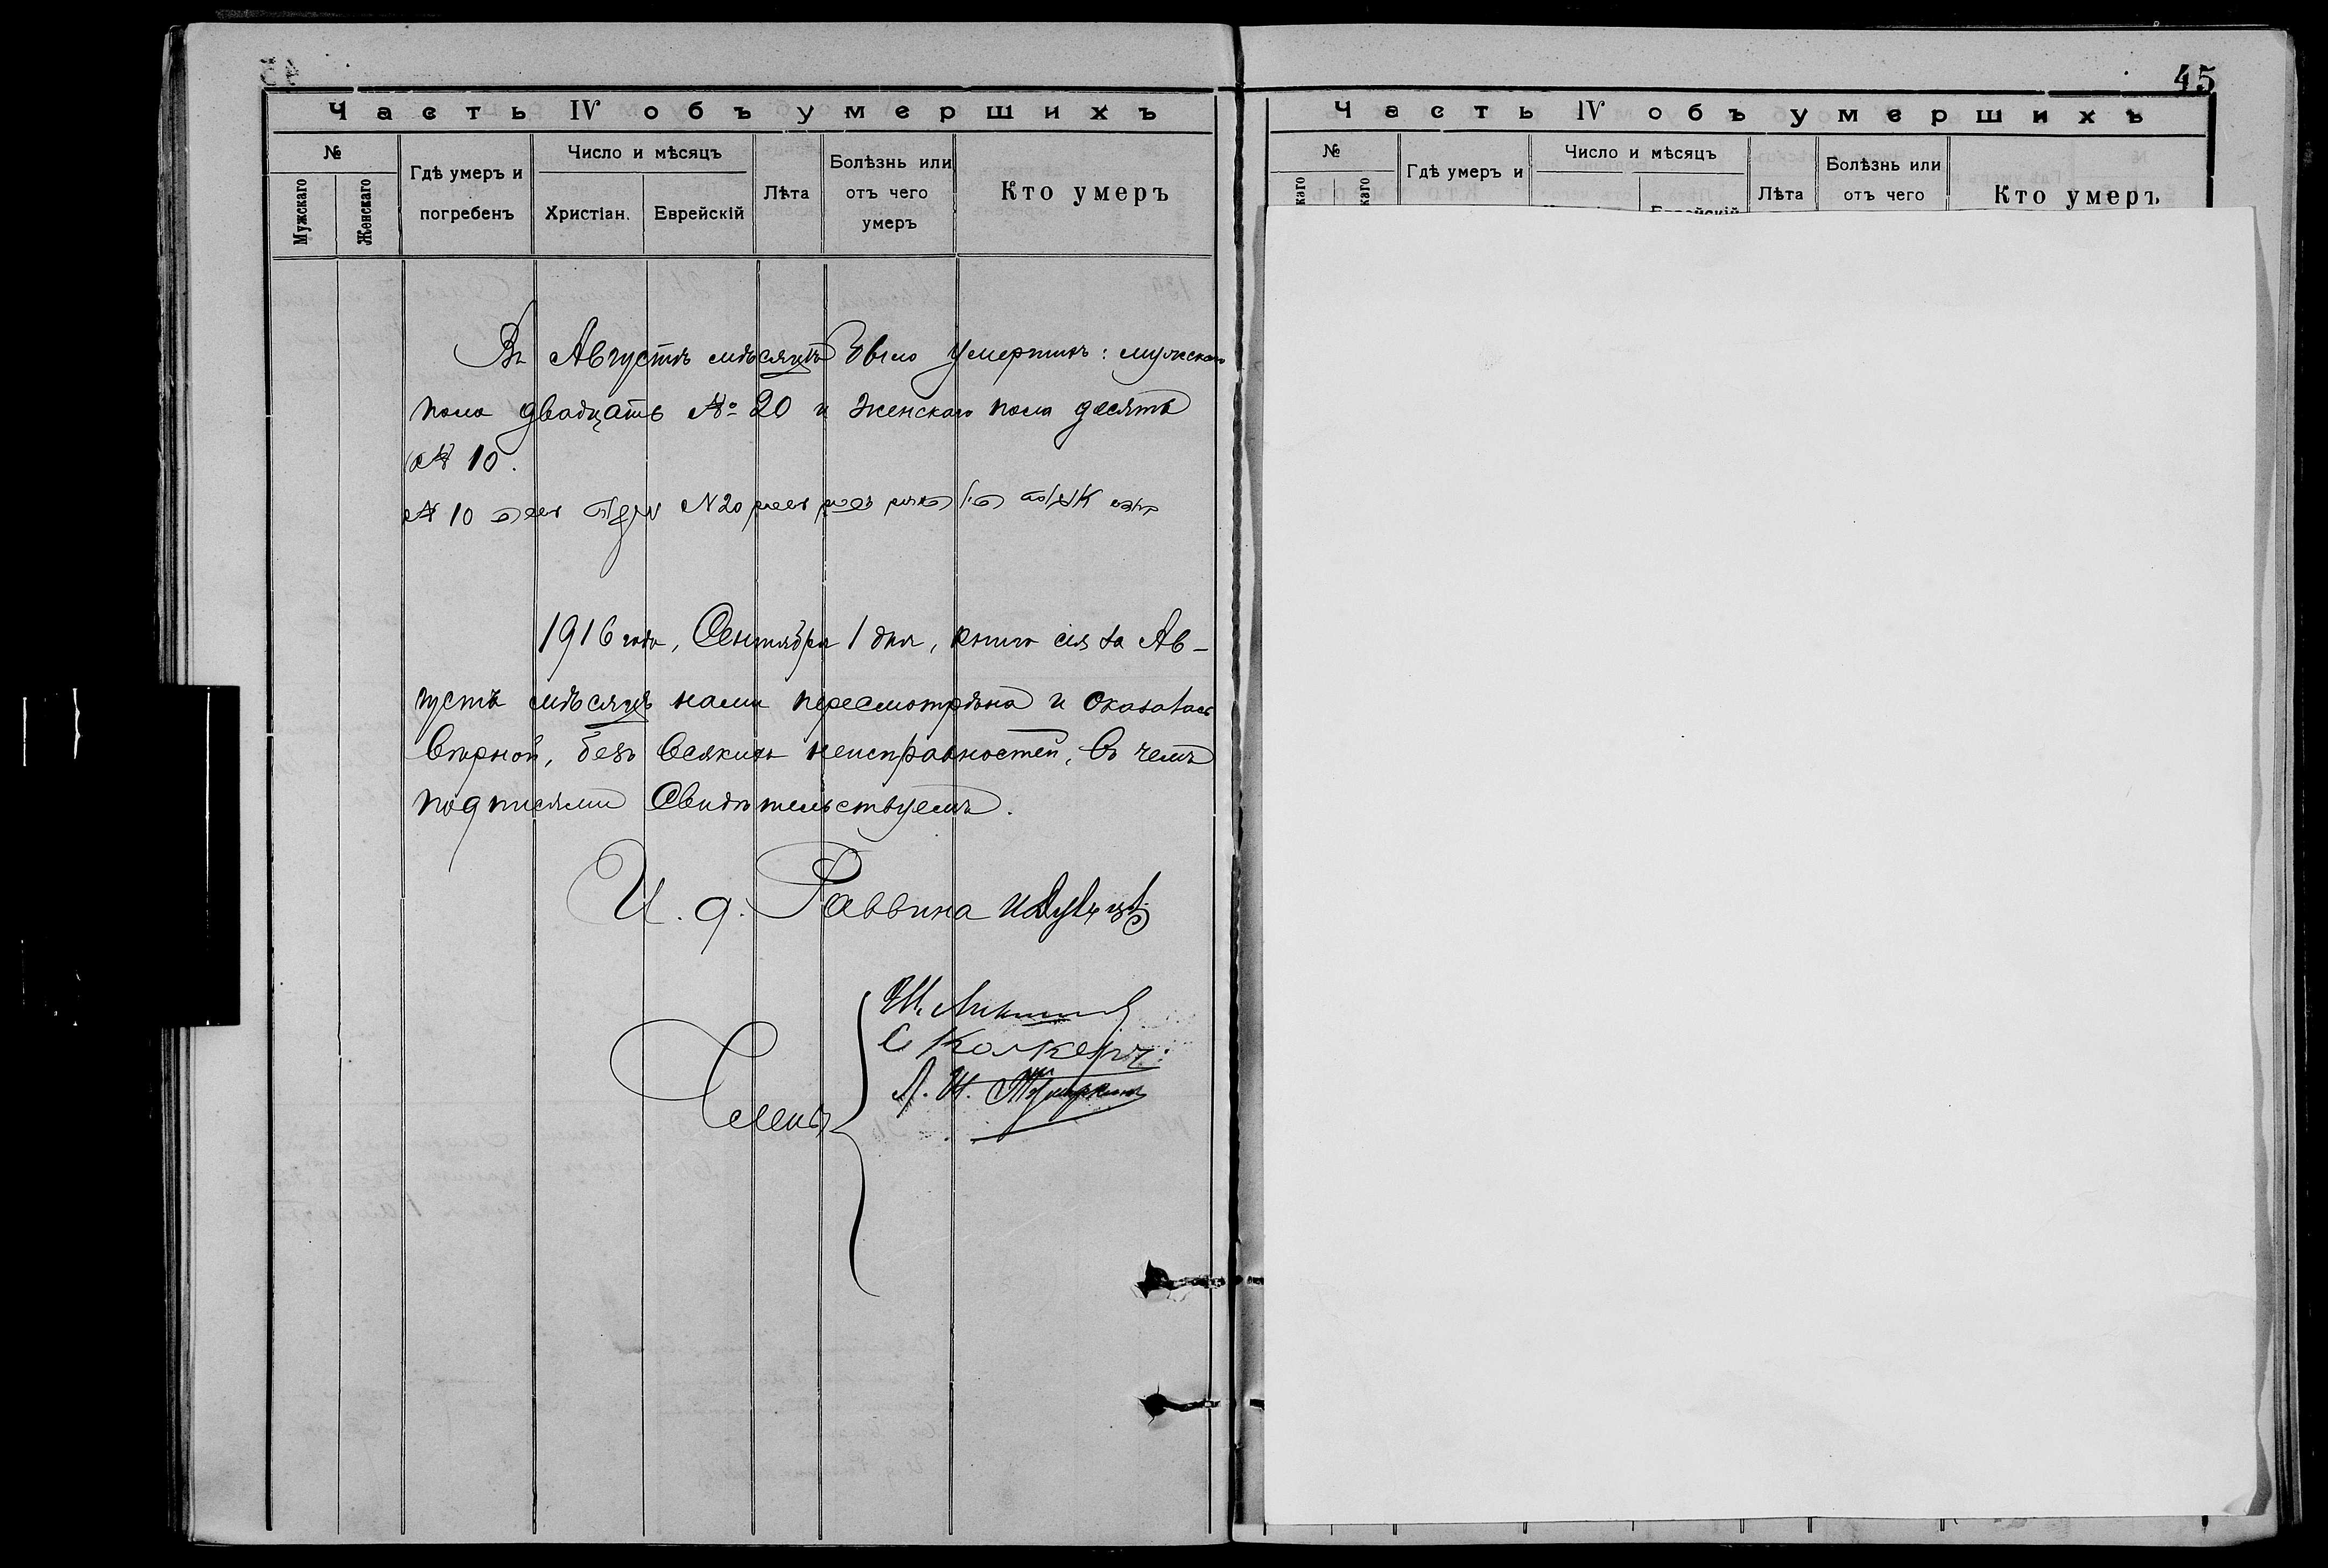 45
Часть IV объ умершихъ
№
Мужскаго
Женскаго
Гдѣ умеръ и погребенъ
Число и мѣсяцъ
Христіан.
Еврейскій
Лѣта
Болѣзнь или отъ чего умеръ
Кто умеръ
Въ Августѣ мѣсяцѣ было умершихъ: мужскаго
пола двадцать № 20 и женскаго пола десять
№ 10.
№ 10 N 20
1916 года, Сентября 1 дня, книга сія за Ав-
густъ мѣсяцъ нами пересмотрѣна и оказалась
вѣрной, безъ всякихъ неисправностей, въ чемъ
подписями свидѣтельствуемъ.
И. д. Раввина
Члены
С Колкеръ
Л. И.
45
Часть IV объ умершихъ
№
каго
каго
Гдѣ умеръ и
Число и мѣсяцъ
Еврейскій
Лѣта
Болѣзнь или
отъ чего
Кто умеръ